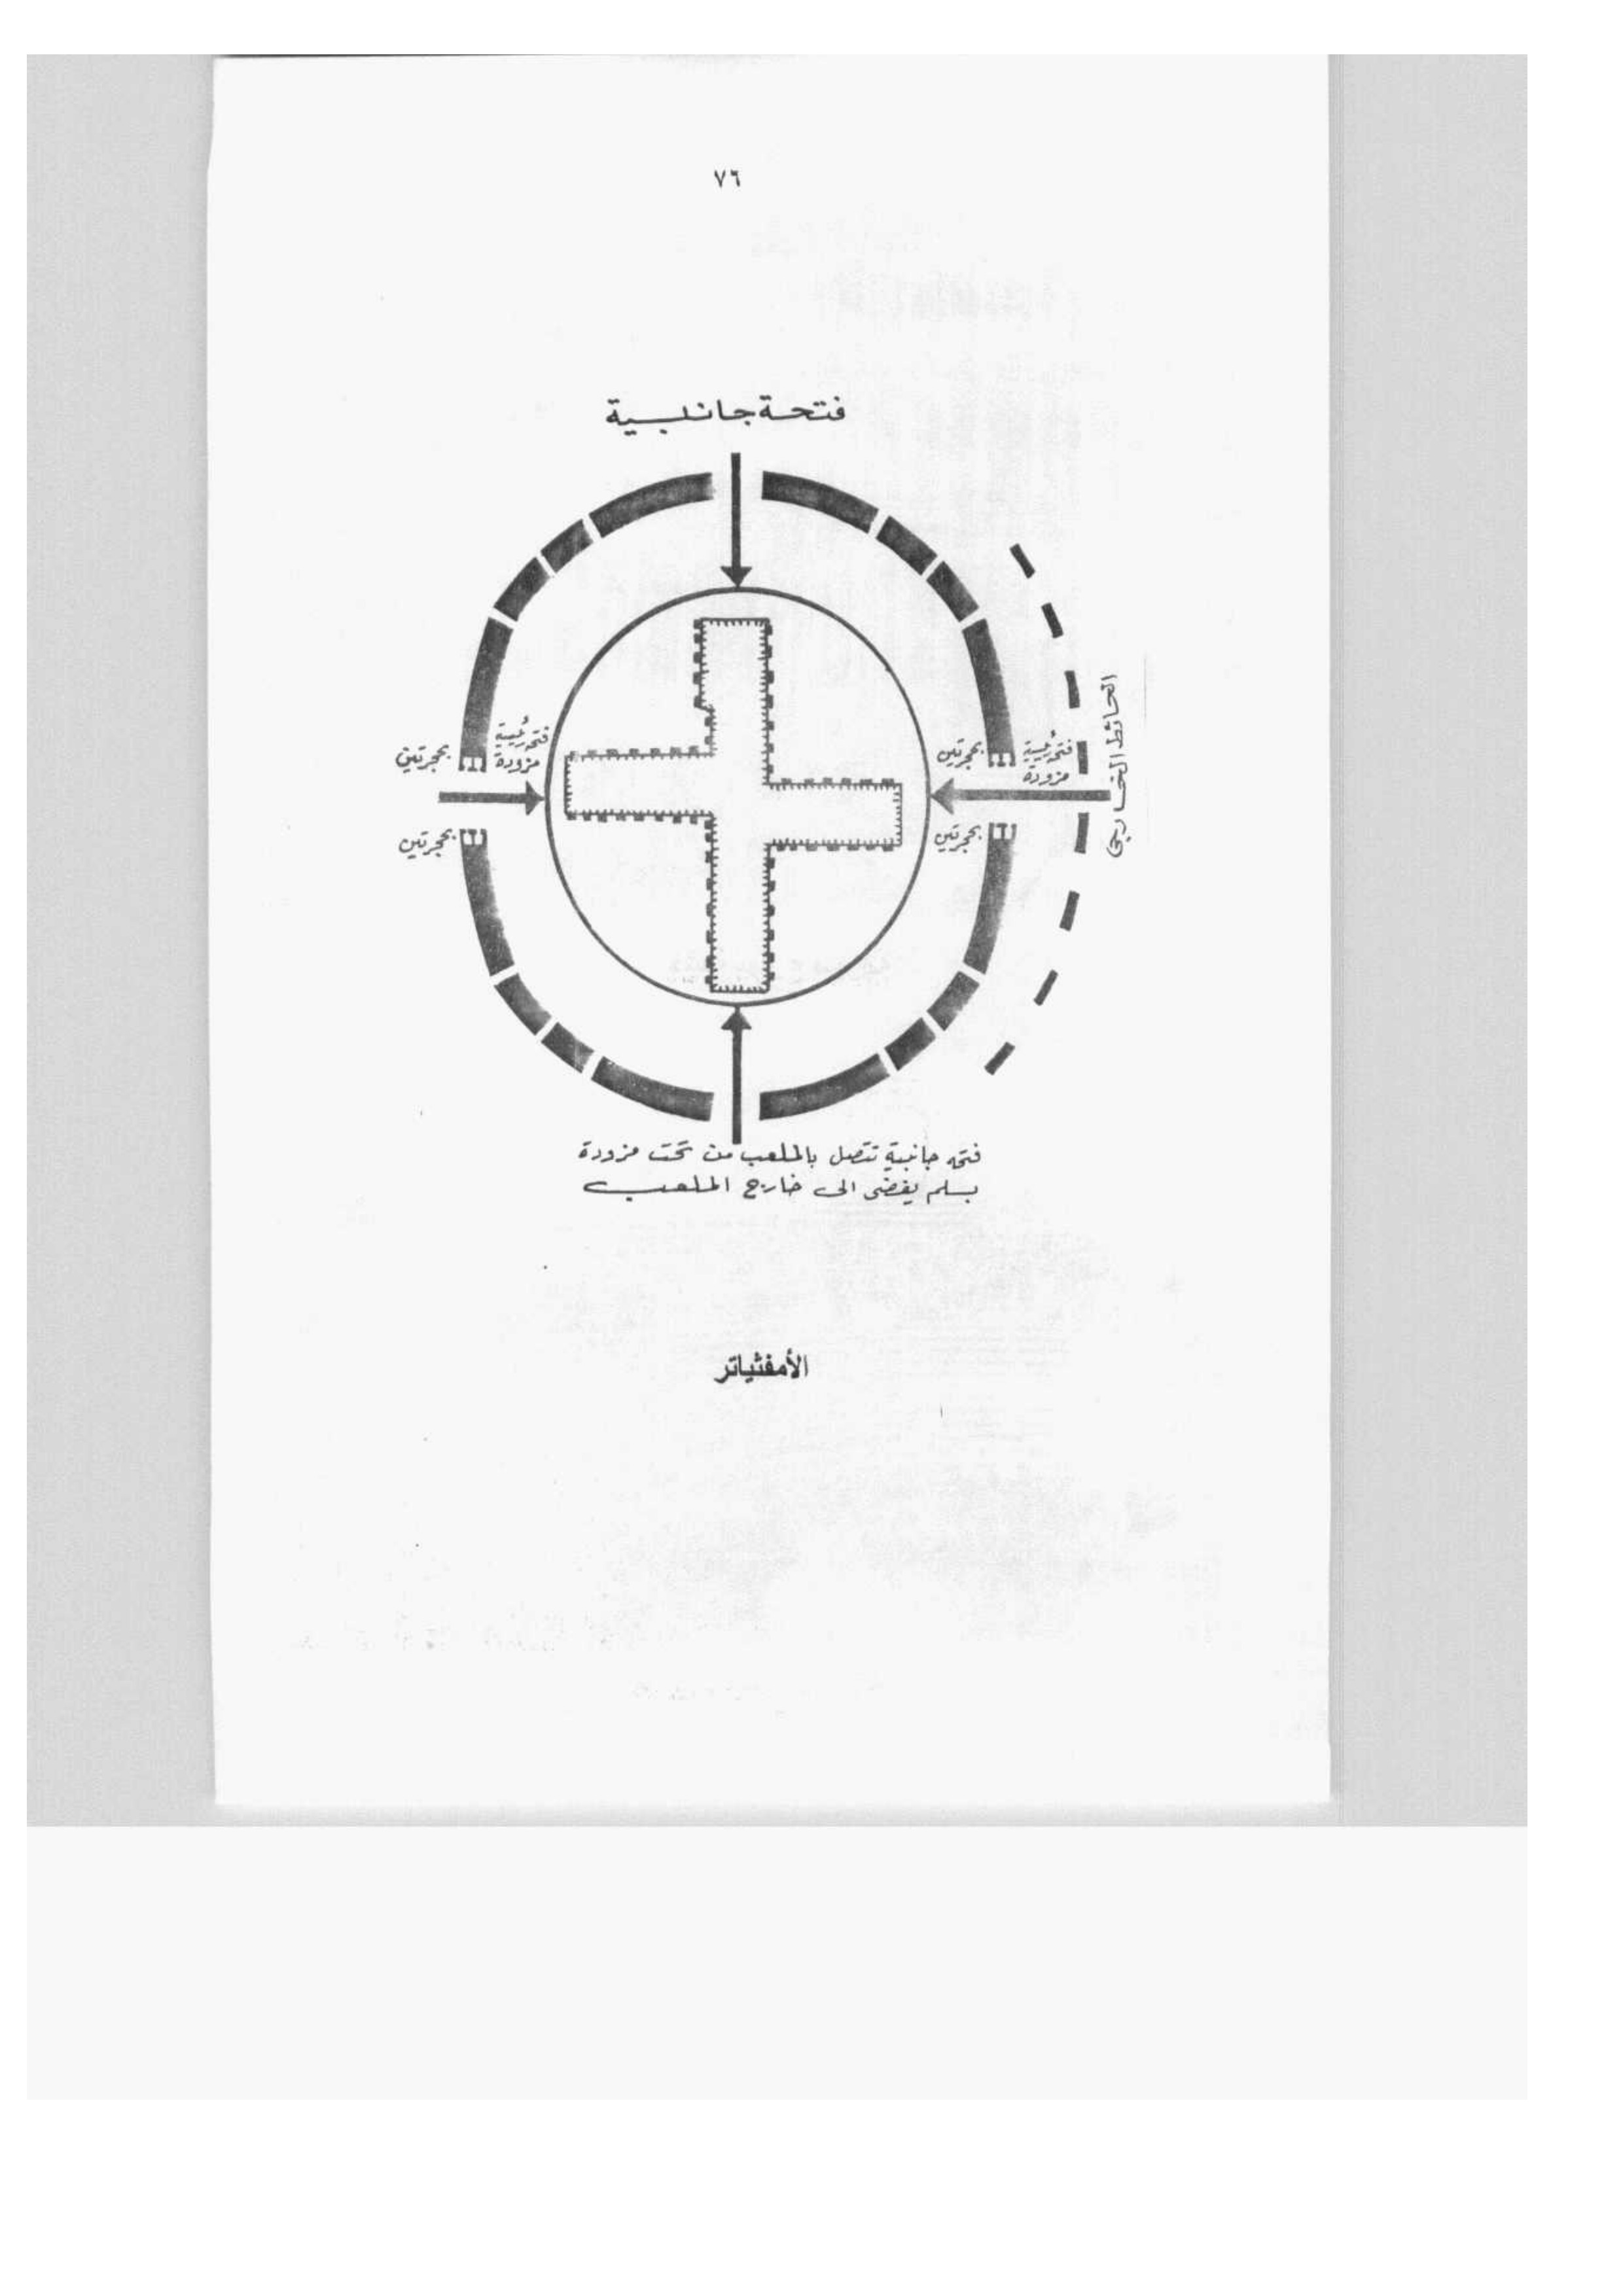 ٧٦
فتحة جانبية
فتحة رئيسية
مزودة
بحجرتين
بحجرتين
فتحة رئيسية
مزودة
بحجرتين
بحجرتين
الحائط الخارجى
فتحه جانبية تتصل بالملعب من تحت مزودة
بسلم يفضى الى خارج الملعب
الأمفثياتر